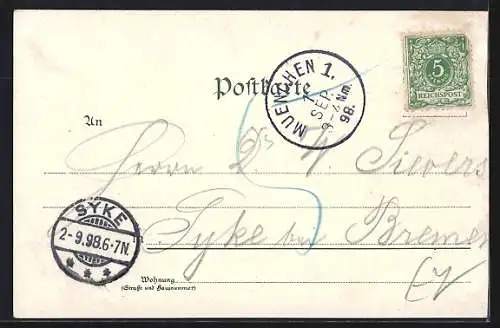 Postkarte
5
REICHSPOST
MUENCHEN 1.
SEP.
Nm.
98.
An
Herrn
Sievers
SYKE
2-9.98.6-7N.
Syke bei Bremen
Wohnung
(Straße und Hausnummer)